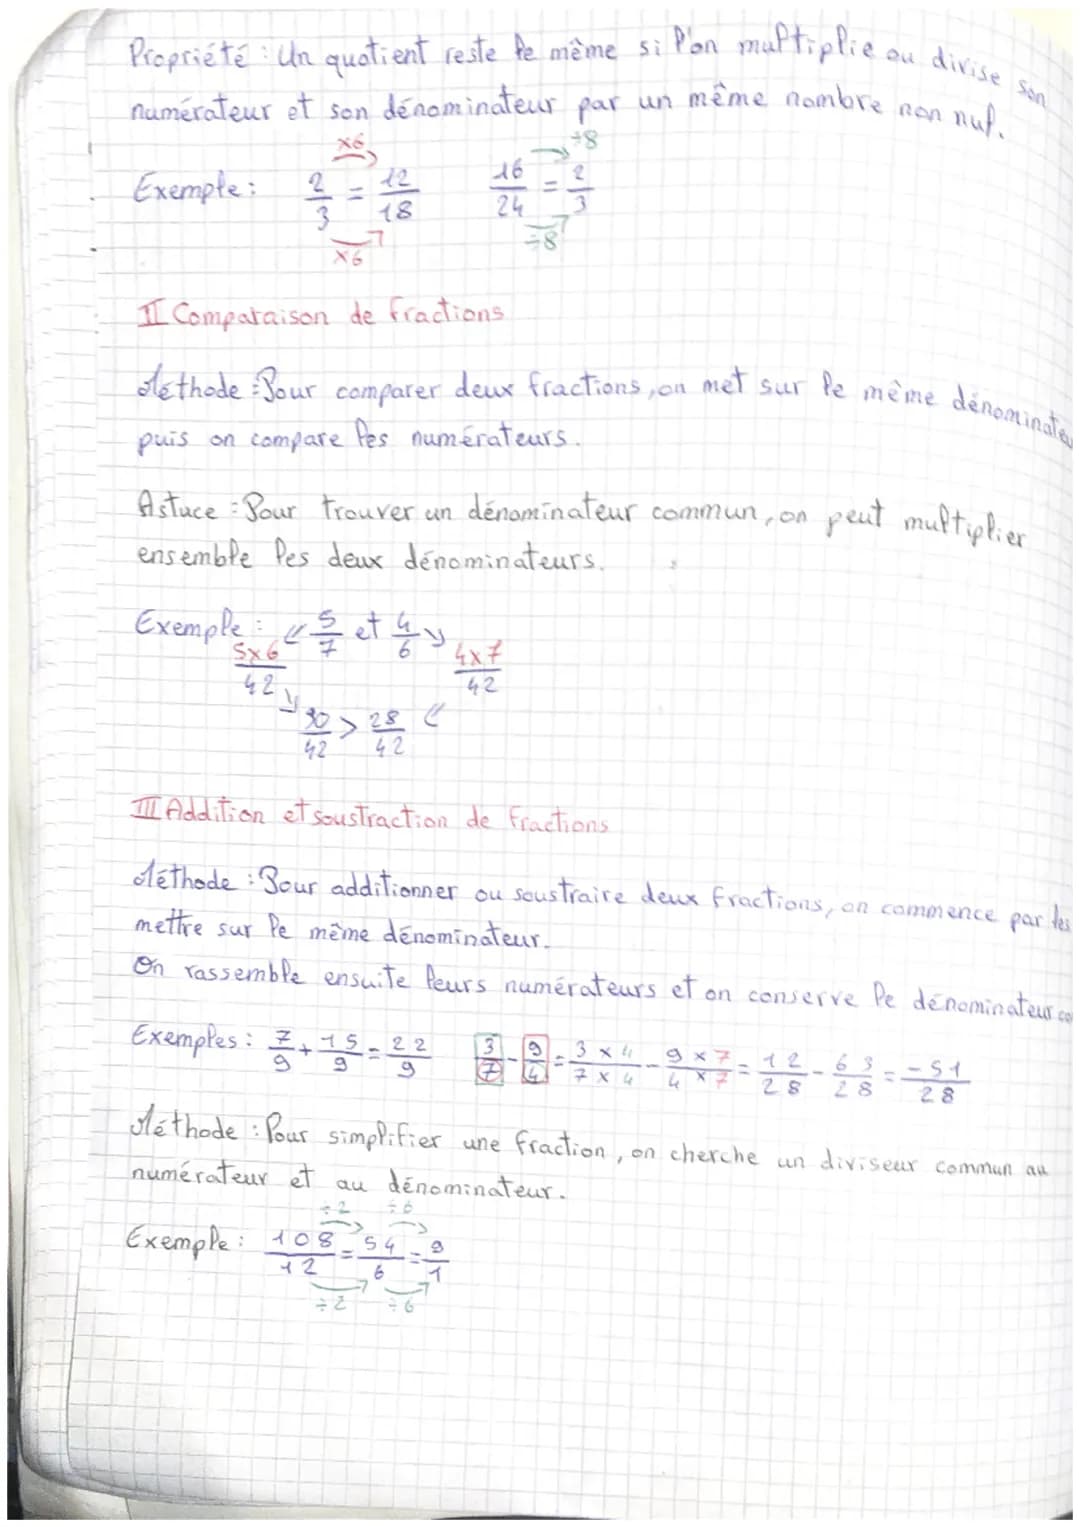 Propriété : Un quotient reste le même si l'on multiplie ou divise son
numérateur et son dénominateur par un même nombre non nul.
×6 ÷8
Exemple : 2/3 = 12/18 16/24 = 2/3
×6 ÷8
II Comparaison de fractions
Méthode : Pour comparer deux fractions, on met sur le même dénominateu
puis on compare les numérateurs.
Astuce : Pour trouver un dénominateur commun, on peut multiplier
ensemble les deux dénominateurs.
Exemple : 5/7 et 4/6
5×6/42 4×7/42
30/42 > 28/42
III Addition et soustraction de fractions
Méthode : Pour additionner ou soustraire deux fractions, on commence par les
mettre sur le même dénominateur.
On rassemble ensuite leurs numérateurs et on conserve le dénominateur co
Exemples : 7/9 + 15/9 = 22/9 3/7 - 9/4 = 3×4/7×4 - 9×7/4×7 = 12/28 - 63/28 = -51/28
Méthode : Pour simplifier une fraction, on cherche un diviseur commun au
numérateur et au dénominateur.
÷2 ÷6
Exemple : 108/12 = 54/6 = 9/1
÷2 ÷6